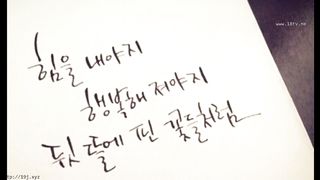 www.18tv.me
힘을 내야지
행복해져야지
뒷뜰에 핀 꽃들처럼
ttp://19j.xyz